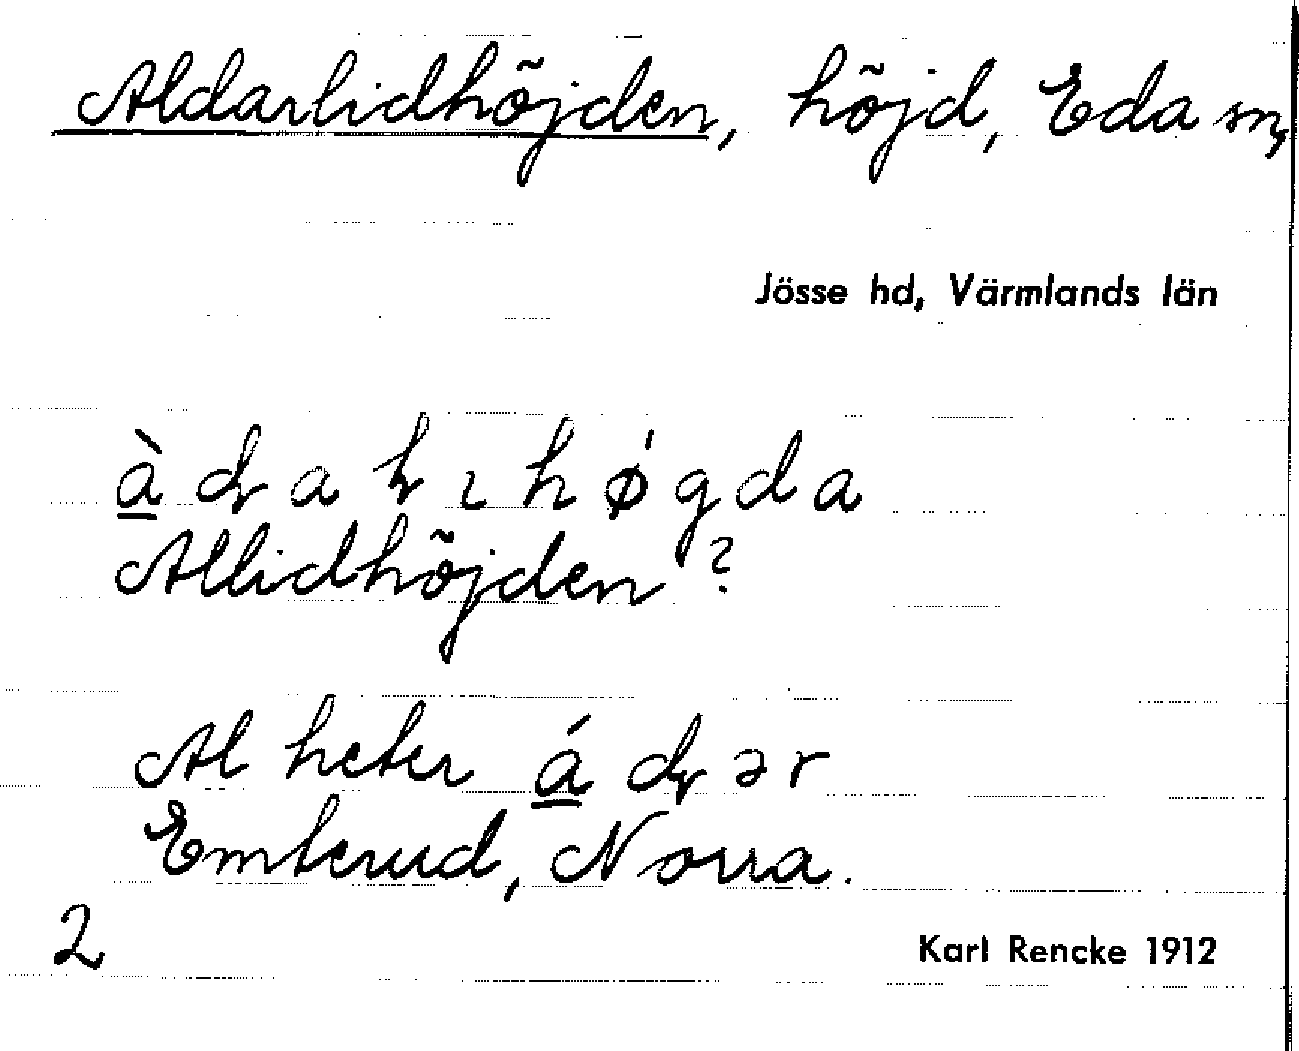 Aldarlidhöjden, höjd, Eda sn,
Jösse hd, Värmlands län
à ɖ a ɽ ɩ h ǿ g d a
Allidhöjden?
Al heter á ɖ ə r
Emterud, Norra.
2
Karl Rencke 1912